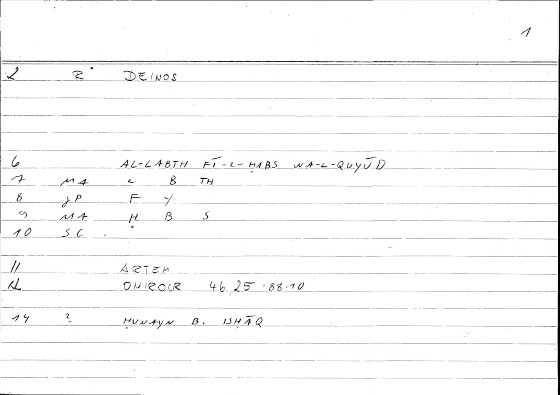 1
2 R DEINOS
6 AL-LABTH FĪ-L-ḤABS WA-L-QUYŪD
7 MA L B TH
8 JP F Y
9 MA Ḥ B S
10 SC
11 ARTEM
12 ONIROCR 46,25 88.10
14 ? ḤUNAYN B. ISḤĀQ